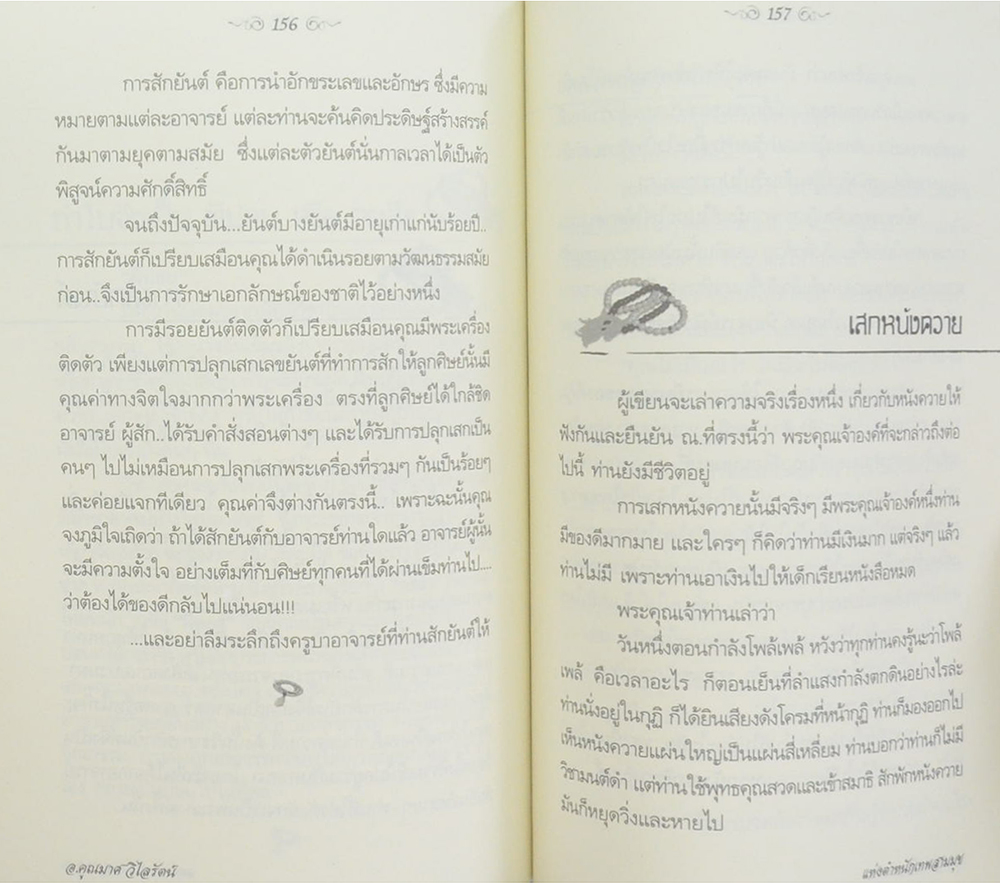 156
การสักยันต์ คือการนำอักขระเลขและอักษร ซึ่งมีความ
หมายตามแต่ละอาจารย์ แต่ละท่านจะค้นคิดประดิษฐ์สร้างสรรค์
กันมาตามยุคตามสมัย ซึ่งแต่ละตัวยันต์นั่นกาลเวลาได้เป็นตัว
พิสูจน์ความศักดิ์สิทธิ์
จนถึงปัจจุบัน...ยันต์บางยันต์มีอายุเก่าแก่นับร้อยปี..
การสักยันต์ก็เปรียบเสมือนคุณได้ดำเนินรอยตามวัฒนธรรมสมัย
ก่อน..จึงเป็นการรักษาเอกลักษณ์ของชาติไว้อย่างหนึ่ง
การมีรอยยันต์ติดตัวก็เปรียบเสมือนคุณมีพระเครื่อง
ติดตัว เพียงแต่การปลุกเสกเลขยันต์ที่ทำการสักให้ลูกศิษย์นั้นมี
คุณค่าทางจิตใจมากกว่าพระเครื่อง ตรงที่ลูกศิษย์ได้ใกล้ชิด
อาจารย์ ผู้สัก..ได้รับคำสั่งสอนต่างๆ และได้รับการปลุกเสกเป็น
คนๆ ไปไม่เหมือนการปลุกเสกพระเครื่องที่รวมๆ กันเป็นร้อยๆ
และค่อยแจกทีเดียว คุณค่าจึงต่างกันตรงนี้.. เพราะฉะนั้นคุณ
จงภูมิใจเถิดว่า ถ้าได้สักยันต์กับอาจารย์ท่านใดแล้ว อาจารย์ผู้นั้น
จะมีความตั้งใจ อย่างเต็มที่กับศิษย์ทุกคนที่ได้ผ่านเข็มท่านไป....
ว่าต้องได้ของดีกลับไปแน่นอน!!!
...และอย่าลืมระลึกถึงครูบาอาจารย์ที่ท่านสักยันต์ให้
อ.คุณมาศ วิไลรัตน์
157
เสกหนังควาย
ผู้เขียนจะเล่าความจริงเรื่องหนึ่ง เกี่ยวกับหนังควายให้
ฟังกันและยืนยัน ณ.ที่ตรงนี้ว่า พระคุณเจ้าองค์ที่จะกล่าวถึงต่อ
ไปนี้ ท่านยังมีชีวิตอยู่
การเสกหนังควายนั้นมีจริงๆ มีพระคุณเจ้าองค์หนึ่งท่าน
มีของดีมากมาย และใครๆ ก็คิดว่าท่านมีเงินมาก แต่จริงๆ แล้ว
ท่านไม่มี เพราะท่านเอาเงินไปให้เด็กเรียนหนังสือหมด
พระคุณเจ้าท่านเล่าว่า
วันหนึ่งตอนกำลังโพล้เพล้ หวังว่าทุกท่านคงรู้นะว่าโพล้
เพล้ คือเวลาอะไร ก็ตอนเย็นที่ลำแสงกำลังตกดินอย่างไรล่ะ
ท่านนั่งอยู่ในกุฏิ ก็ได้ยินเสียงดังโครมที่หน้ากุฏิ ท่านก็มองออกไป
เห็นหนังควายแผ่นใหญ่เป็นแผ่นสี่เหลี่ยม ท่านบอกว่าท่านก็ไม่มี
วิชามนต์ดำ แต่ท่านใช้พุทธคุณสวดและเข้าสมาธิ สักพักหนังควาย
มันก็หยุดวิ่งและหายไป
แห่งตำหนักเทพสามมุข